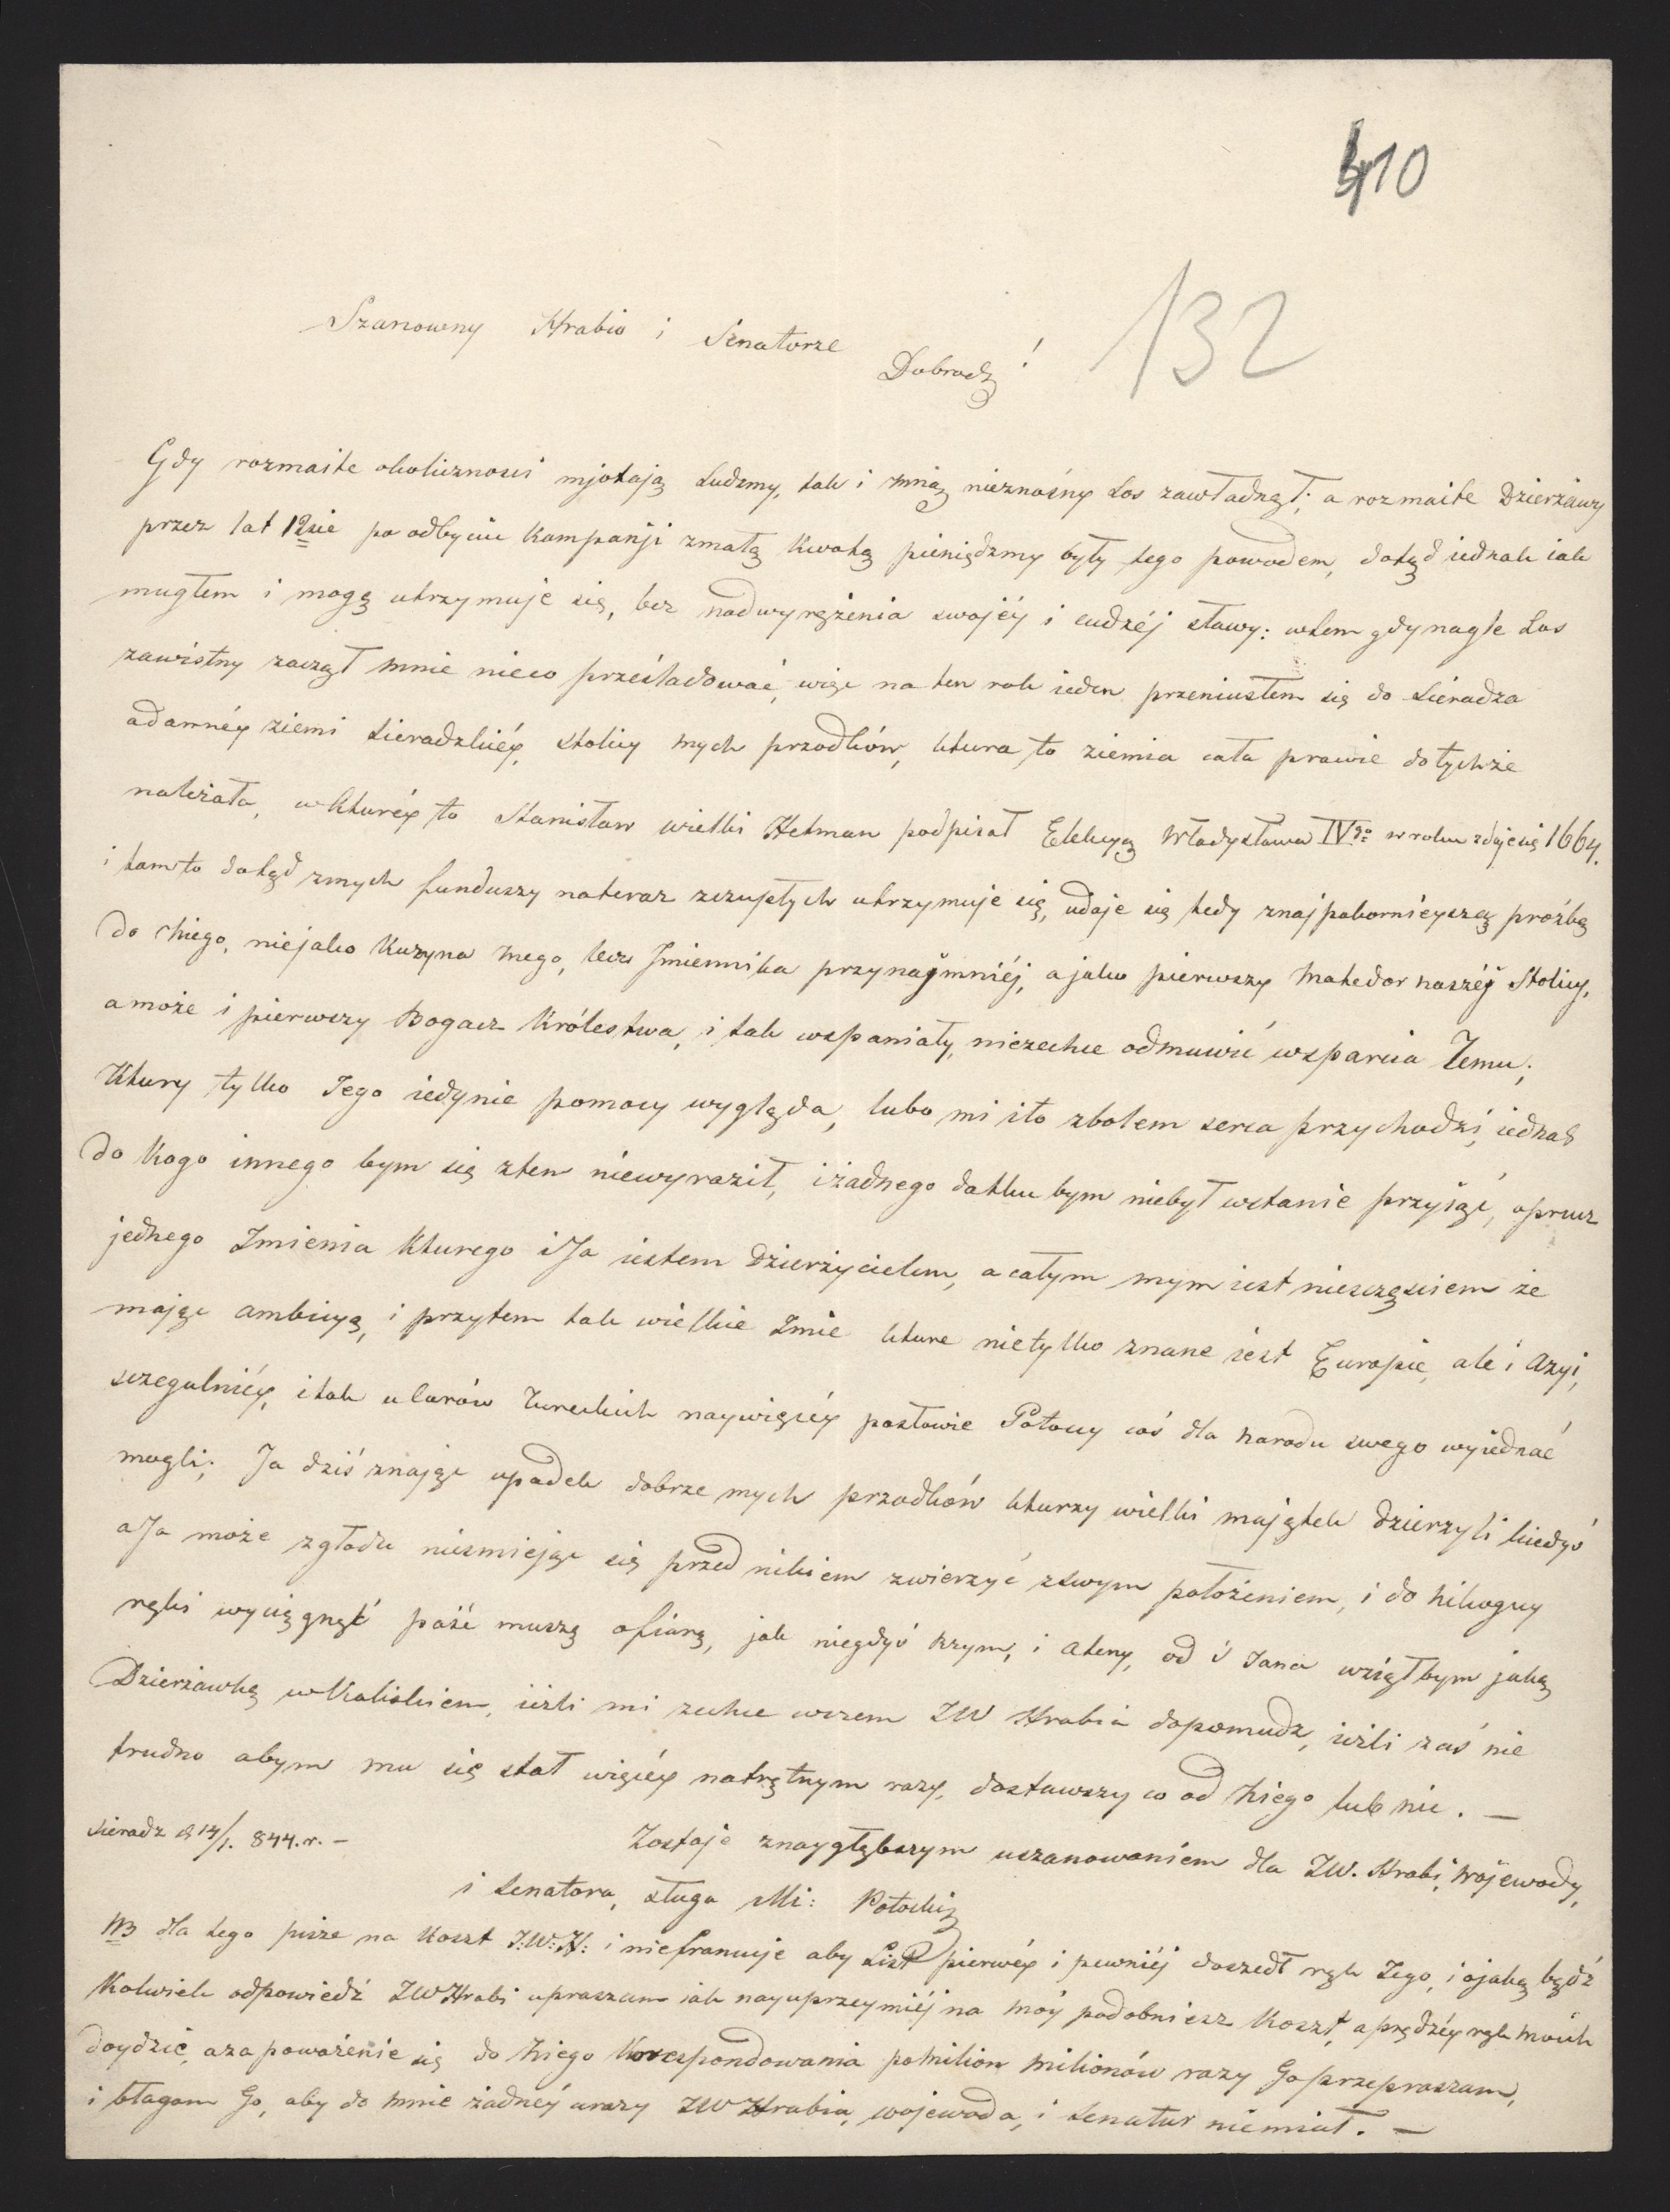 410
132
Szanowny Hrabio i Senatorze
Dobrodz !
Gdy rozmaite okoliczności mjotają Ludzmy, tak i mną nieznośny Los zawładnął; a rozmaite Dzierżawy
przez lat 12sie po odbyciu Kampanji zmałą kwotą pieniędzmy były tego powodem, dotąd iednak iak
mugłem i mogę utrzymuje się, bez nadwyrężenia swojéy i cudzéj sławy: wtem gdy nagle Los
zawistny zaczął mnie nieco prześladować, więc na ten rok ieden przeniusłem się do Sieradza
adawnéy ziemi Sieradzkiéy, stolicy mych przodków, ktura to ziemia cała prawie dotychże
należała, w kturéy to Stanisław wielki Hetman podpisał Elekcyą Władysława IVgo w roku zdaje się 1664.
i tam to dotąd zmych funduszy nateraz szczupłych utrzymuje się, udaje się tedy znajpokornieyszą proźbą
do Niego, niejako Kuzyna mego, lecz Jmiennika przynajmniéj, a jako pierwszy Matedor naszéj Stolicy,
a może i pierwszy Bogacz Królestwa, i tak wspaniały, niezechce odmuwić wsparcia Temu,
Ktury tylko Jego iedynie pomocy wygląda, lubo mi ito zbolem serca przychodzi, iednak
do Kogo innego bym się ztem niewyraził, i żadnego datku bym niebył wstanie przyjąć, oprucz
jednego Imienia kturego i Ja iestem Dzierżycielem, a całym mym iest nieszczęściem że
mając ambicyą, i przytem tak wielkie Imie kture nietylko znane iest Europie, ale i Azyi,
szczegulniéy, i tak u Carów Tureckich naywięcéy posłowie Potoccy coś dla Narodu swego wyiednać
mogli; Ja dziś znając upadek dobrze mych przodków kturzy wielki majątek dzierzyli kiedyś
a Ja może zgłodu nieśmiejąc się przed nikiem zwierzyć zswym położeniem, i do nikoguy
ręki wyciągnąć paść muszę ofiarą, jak niegdyś Rzym, i Ateny, od Ś Jana wziąłbym jaką
Dzierżawkę w Kaliskiem, ieżli mi zechce wczem JW Hrabia dopomudz, ieżli zaś nie
trudno abym mu się stał więcéy natrętnym razy, dostawszy co od Niego lub nic. —
Sieradz d 14/1. 844. r. –
Zostaje znaygłębszym uszanowaniem dla JW. Hrabi, Wojewody,
i Senatora, sługa Mi: Potocki
NB dla tego pisze na Koszt J:W:H: i niefrancuje aby List pierwéy i pewniéj doszedł rąk Jego, i ojaką bądź
Kolwiek odpowiedź JWHrabi upraszam iak nayuprzeymiéj na mój podobniesz Koszt, aprędzéy rąk moich
doydzie, aza poważenie się do Niego Korespondowania pomilion milionów razy Go przepraszam,
i błagam Go, aby do mnie żadnéy urazy JW Hrabia, wojewoda, i Senatur niemiał. —